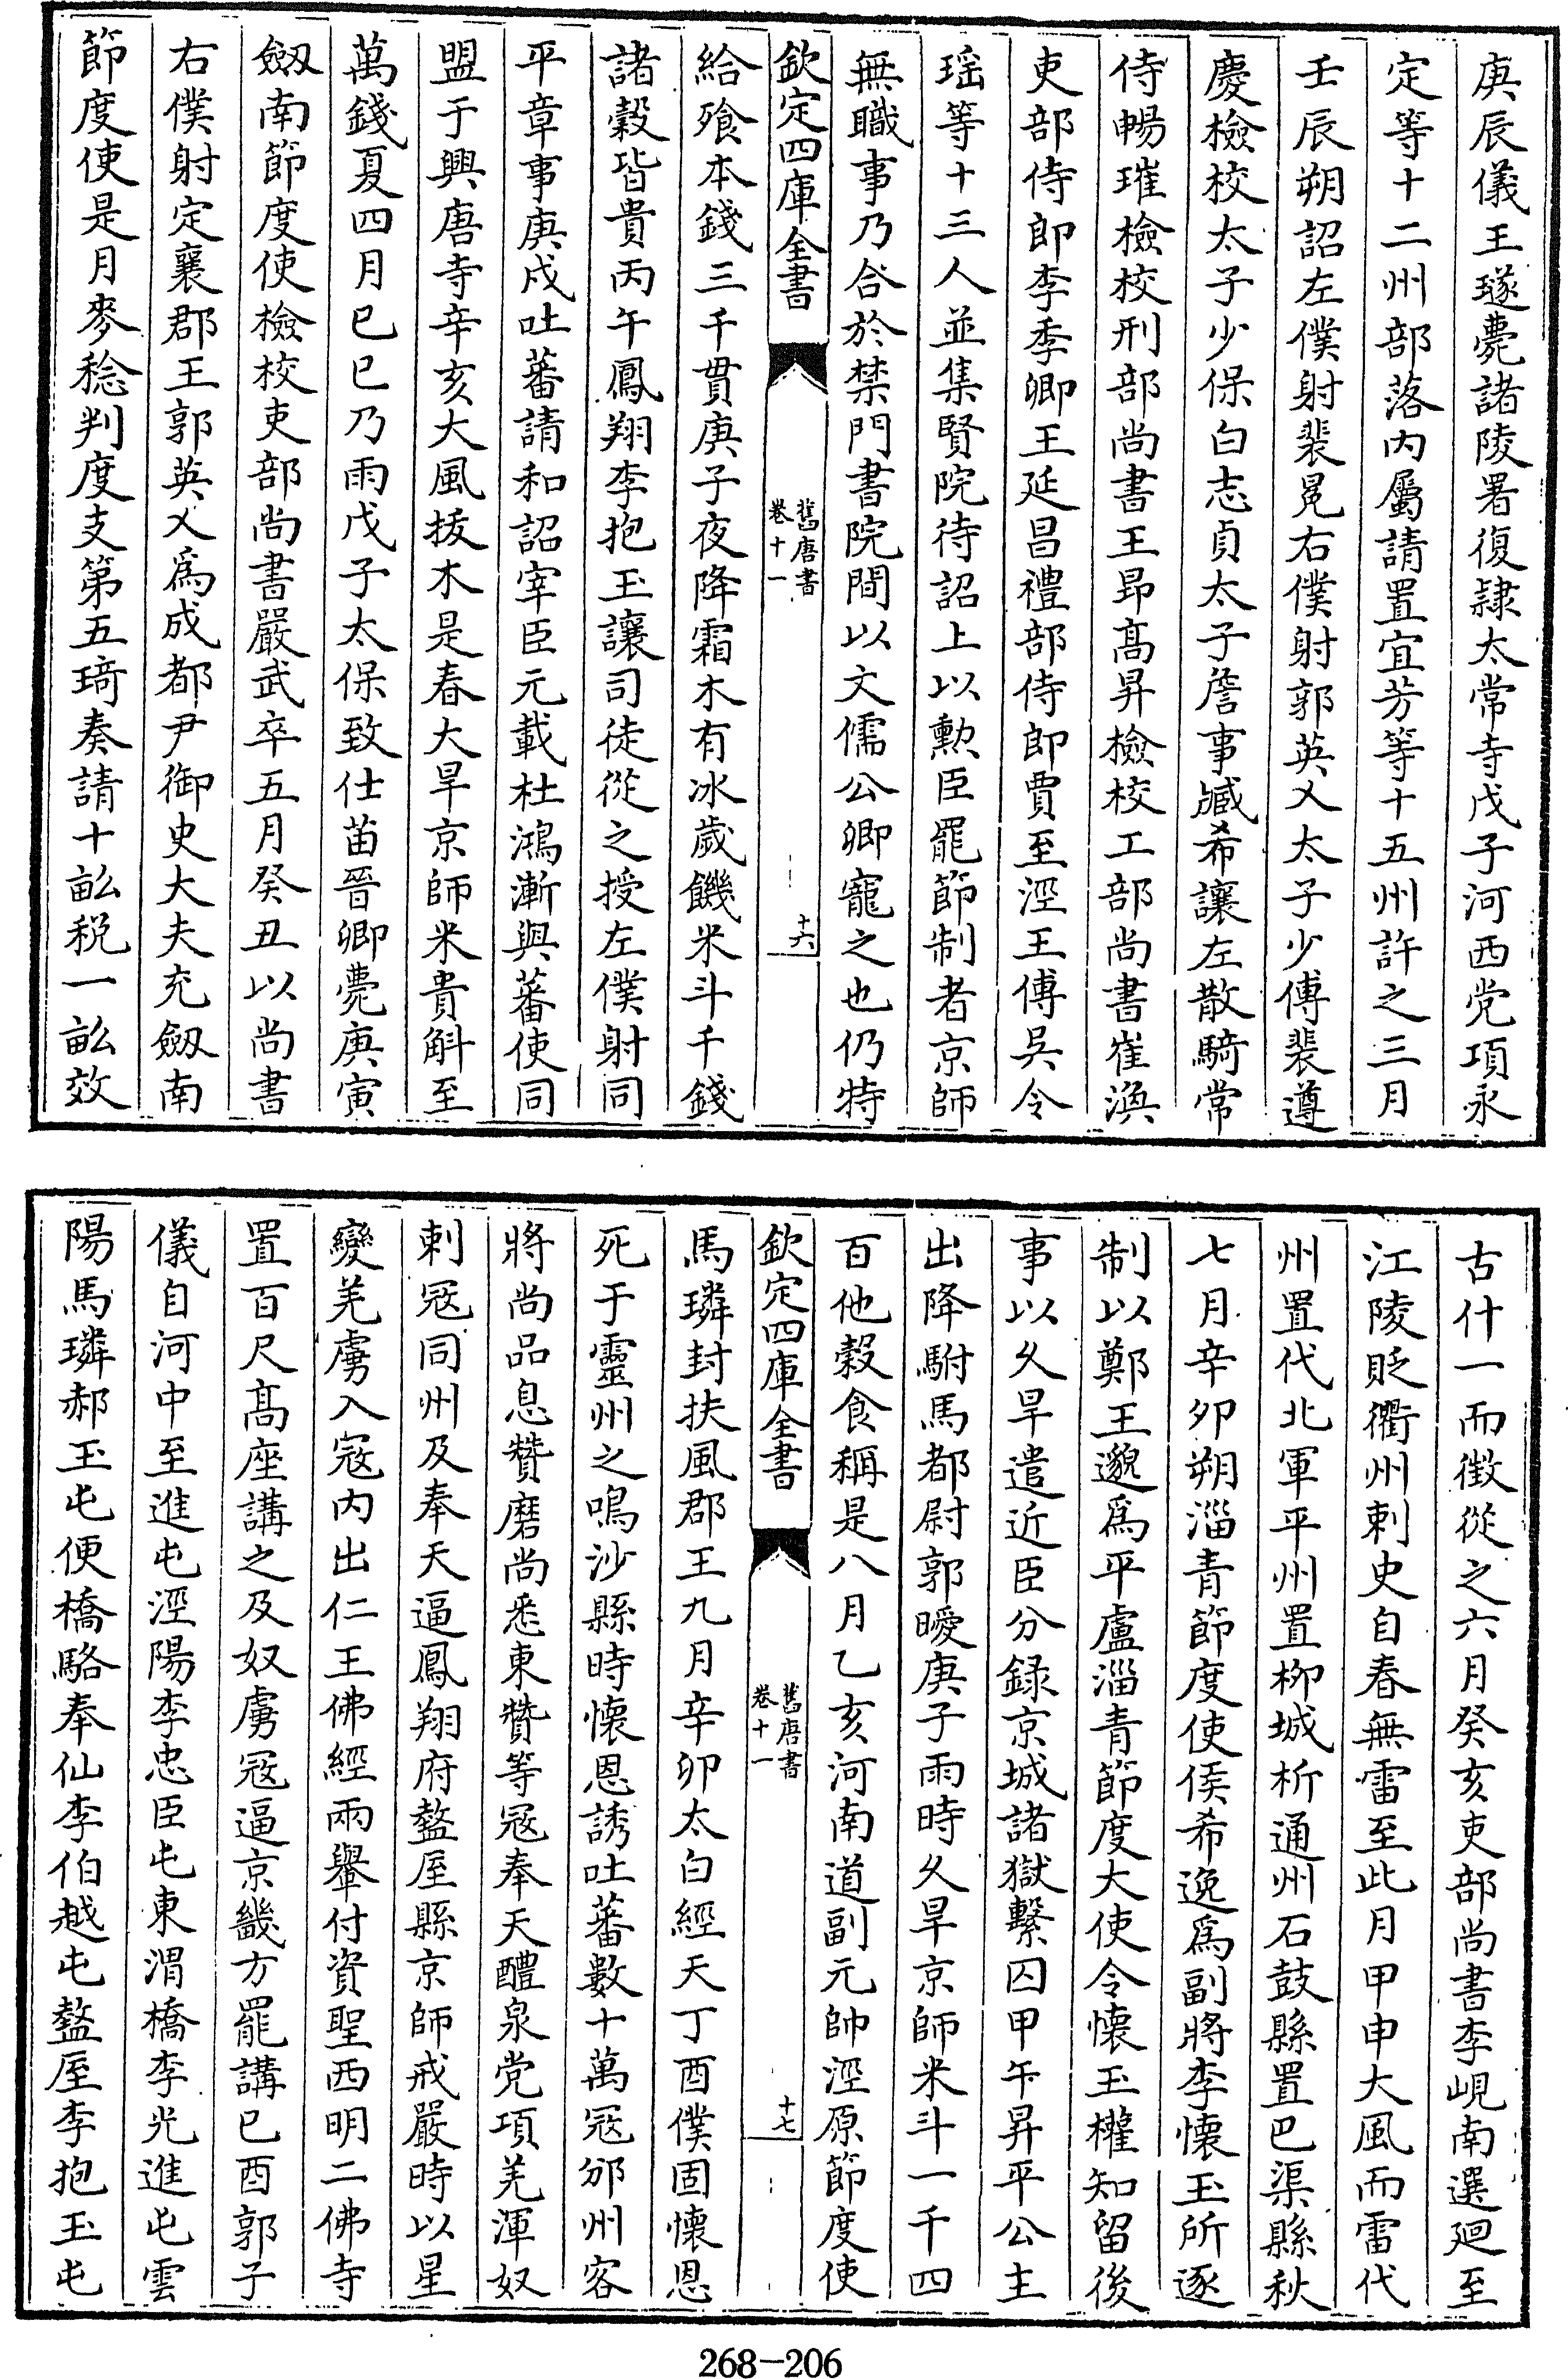 庚辰儀王璲薨諸陵署復隷太常寺戊子河西党項永
定等十二州部落内屬請置宜芳等十五州許之三月
壬辰朔詔左僕射裴冕右僕射郭英乂太子少傅裴遵
慶檢校太子少保白志貞太子詹事臧希讓左散騎常
侍暢璀檢校刑部尚書王昂髙昇檢校工部尚書崔渙
吏部侍郎李季卿王延昌禮部侍郎賈至涇王傅吳令
瑶等十三人並集賢院待詔上以勲臣罷節制者京師
無職事乃合於禁門書院間以文儒公卿寵之也仍特
欽定四庫全書
舊唐書
卷十一
十六
給飱本錢三千貫庚子夜降霜木有冰歲饑米斗千錢
諸穀皆貴丙午鳳翔李抱玉讓司徒從之授左僕射同
平章事庚戍吐蕃請和詔宰臣元載杜鴻漸與蕃使同
盟于興唐寺辛亥大風拔木是春大旱京師米貴斛至
萬錢夏四月已巳乃雨戊子太保致仕苗晉卿薨庚寅
劔南節度使檢校吏部尚書嚴武卒五月癸丑以尚書
右僕射定襄郡王郭英乂爲成都尹御史大夫充劔南
節度使是月麥稔判度支第五琦奏請十畝税一畝效
古什一而徴從之六月癸亥吏部尚書李峴南選廻至
江陵貶衢州刺史自春無雷至此月甲申大風而雷代
州置代北軍平州置柳城析通州石鼓縣置巴渠縣秋
七月辛夘朔淄青節度使侯希逸爲副將李懷玉所逐
制以鄭王邈爲平盧淄青節度大使令懷玉權知留後
事以乆旱遣近臣分録京城諸獄繫囚甲午昇平公主
出降駙馬都尉郭曖庚子雨時乆旱京師米斗一千四
百他穀食稱是八月乙亥河南道副元帥涇原節度使
欽定四庫全書
舊唐書
卷十一
十七
馬璘封扶風郡王九月辛卯太白經天丁酉僕固懷恩
死于靈州之鳴沙縣時懷恩誘吐蕃數十萬冦邠州客
將尚品息贊磨尚悉東贊等冦奉天醴泉党項羌渾奴
刺冦同州及奉天逼鳳翔府盩厔縣京師戒嚴時以星
變羌虜入冦内出仁王佛經兩轝付資聖西明二佛寺
置百尺髙座講之及奴虜冦逼京畿方罷講已酉郭子
儀自河中至進屯涇陽李忠臣屯東渭橋李光進屯雲
陽馬璘郝玉屯便橋駱奉仙李伯越屯盩厔李抱玉屯
268-206